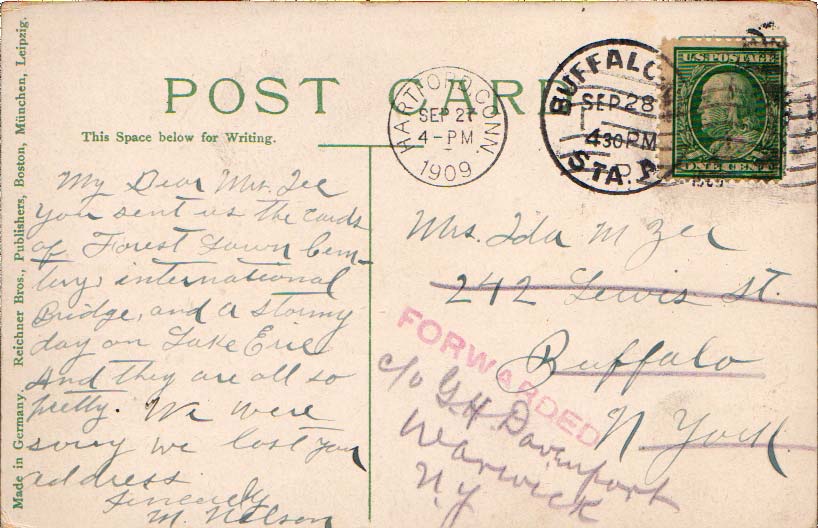 Made in Germany. Reichner Bros., Publishers, Boston, München, Leipzig.
POST CARD
This Space below for Writing.
HARTFORD, CONN.
SEP 27
4-PM
1909
BUFFALO
SEP 28
430PM
STA. A
U.S. POSTAGE
ONE CENT
My Dear Mrs. Zee
You sent us the cards
of Forest Lawn Cem-
tery, international
Bridge, and a stormy
day on Lake Erie
And they are all so
pretty. We were
sorry we lost your
address
Sincerely
M. Nelson
Mrs. Ida M Zee
242 Lewis St.
Buffalo
N York
FORWARDED
c/o G H Davenport
Warwick
N.Y